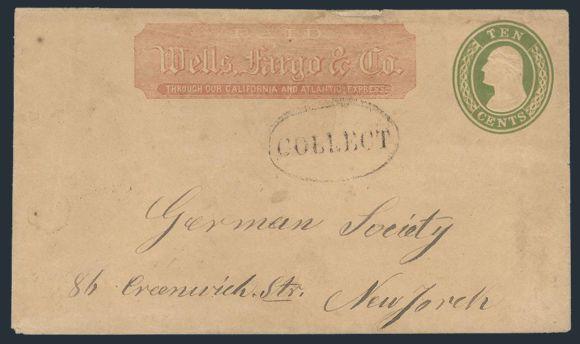 PAID
Wells, Fargo & Co.
THROUGH OUR CALIFORNIA AND ATLANTIC EXPRESS
TEN
CENTS
COLLECT
German Society
86 Greenwich. Str. New Yorck